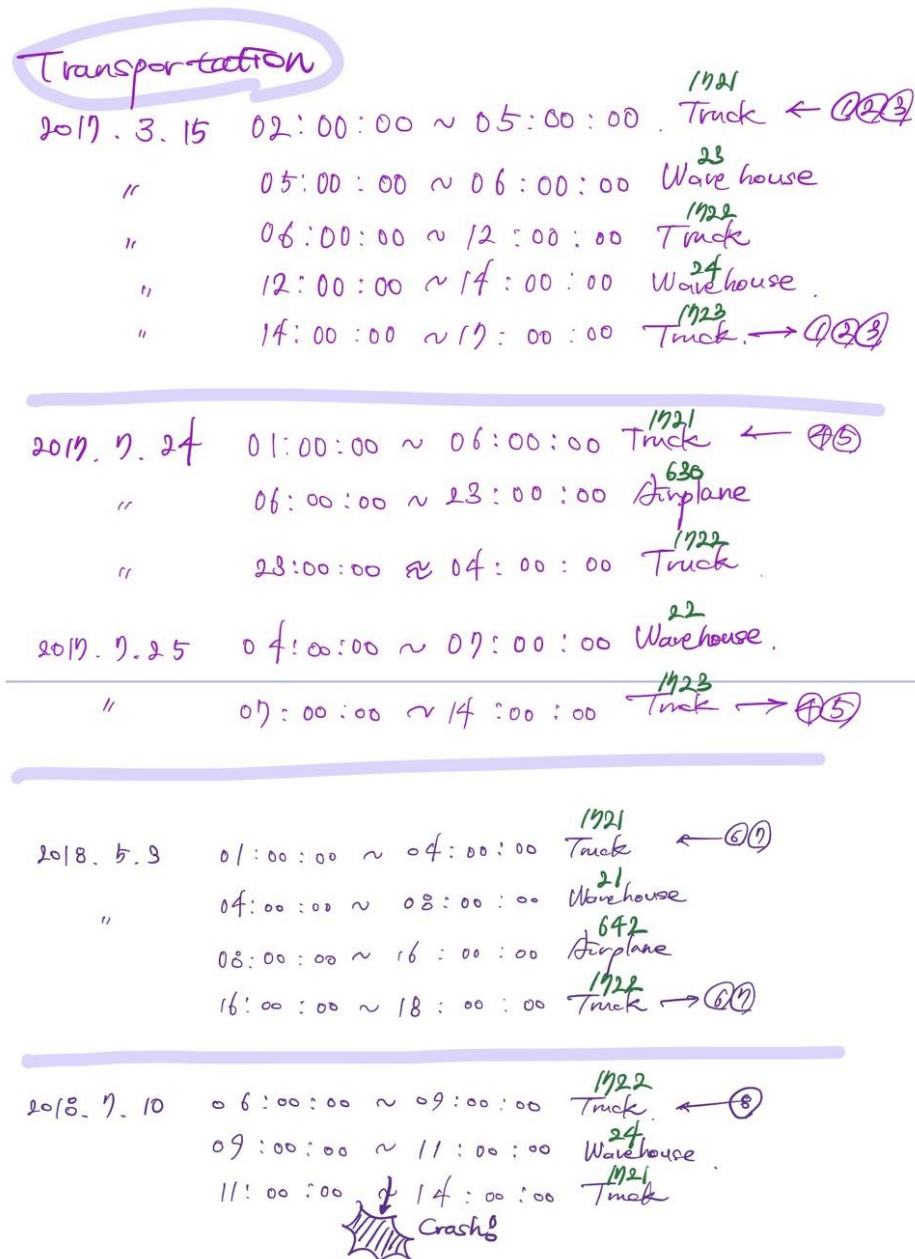 Transportation
1721
2017. 3. 15 02:00:00 ~ 05:00:00. Truck ← ①②③
23
〃 05:00:00 ~ 06:00:00 Warehouse
1722
〃 06:00:00 ~ 12:00:00 Truck
24
〃 12:00:00 ~ 14:00:00 Warehouse.
1723
〃 14:00:00 ~ 17:00:00 Truck. → ①②③
1721
2017. 7. 24 01:00:00 ~ 06:00:00 Truck ← ④⑤
630
〃 06:00:00 ~ 23:00:00 Airplane
1722
〃 23:00:00 ~ 04:00:00 Truck.
22
2017. 7. 25 04:00:00 ~ 07:00:00 Warehouse.
1723
〃 07:00:00 ~ 14:00:00 Truck → ④⑤
1721
2018. 5. 3 01:00:00 ~ 04:00:00 Truck ← ⑥⑦
21
〃 04:00:00 ~ 08:00:00 Warehouse
642
08:00:00 ~ 16:00:00 Airplane
1722
16:00:00 ~ 18:00:00 Truck → ⑥⑦
1722
2018. 7. 10 06:00:00 ~ 09:00:00 Truck. ← ⑧
24
09:00:00 ~ 11:00:00 Warehouse.
1721
11:00:00 ~ 14:00:00 Truck
Crash!